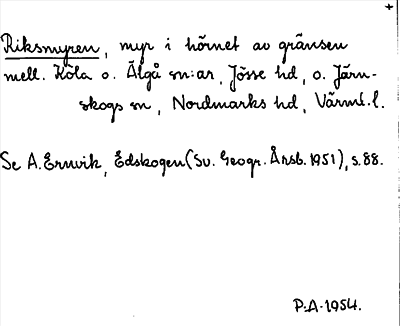 Riksmyren, myr i hörnet av gränsen
mell. Köla o. Älgå sn:ar, Jösse hd, o. Järn-
skogs sn, Nordmarks hd, Värml. l.
Se A. Ernvik, Edskogen (Sv. Geogr. Årsb. 1951), s. 88.
P.A. 1954.